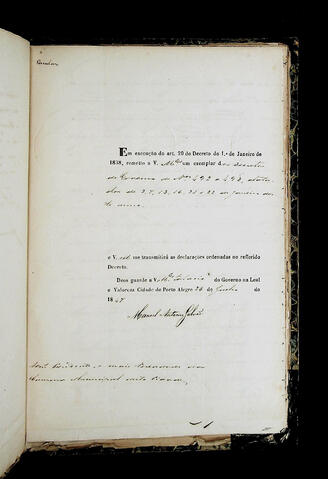 Circular
Em execução do art. 20 do Decreto do 1.º de Janeiro de
1838, remetto a V. um exemplar dos Decretos
do Governo de Nos 492 a 498, data-
dos de 2, 7, 13, 16, 21 e 22 de Janeiro do
anno.
e V. me transmittirá as declarações ordenadas no referido
Decreto.
Deos guarde a V. do Governo na Leal
e Valorosa Cidade de Porto Alegre de de
1847
Manoel Antonio Galvão
Presidente e mais Vereadores da
Camara Municipal